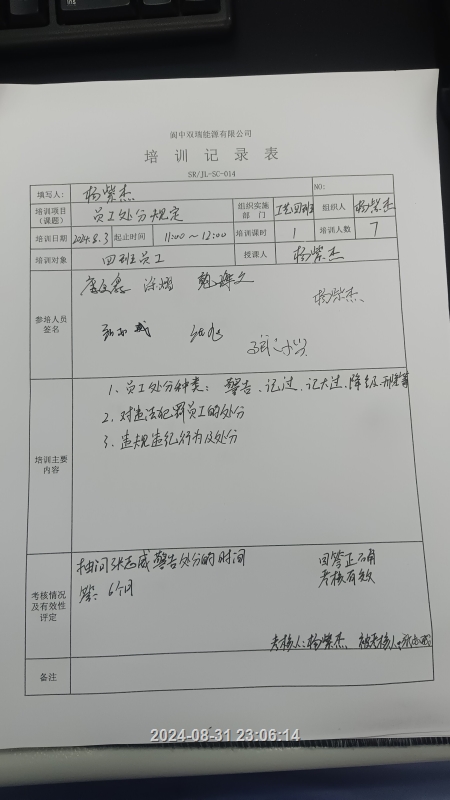 阆中双瑞能源有限公司
培训记录表
SR/JL-SC-014
填写人: 杨紫杰 NO:
培训项目(课题) 员工处分规定 组织实施部门 工艺四班 组织人 杨紫杰
培训日期 2024.8.3 起止时间 11:00～12:00 培训课时 1 培训人数 7
培训对象 四班员工 授课人 杨紫杰
参培人员签名
杨紫杰
培训主要内容
1、员工处分种类：警告、记过、记大过、降级、开除等
2、对违法犯罪员工的处分
3、违规违纪行为及处分
考核情况及有效性评定
抽问张志威警告处分的时间
答：6个月
回答正确
考核有效
考核人：杨紫杰 被考核人：张志威
备注
2024-08-31 23:06:14